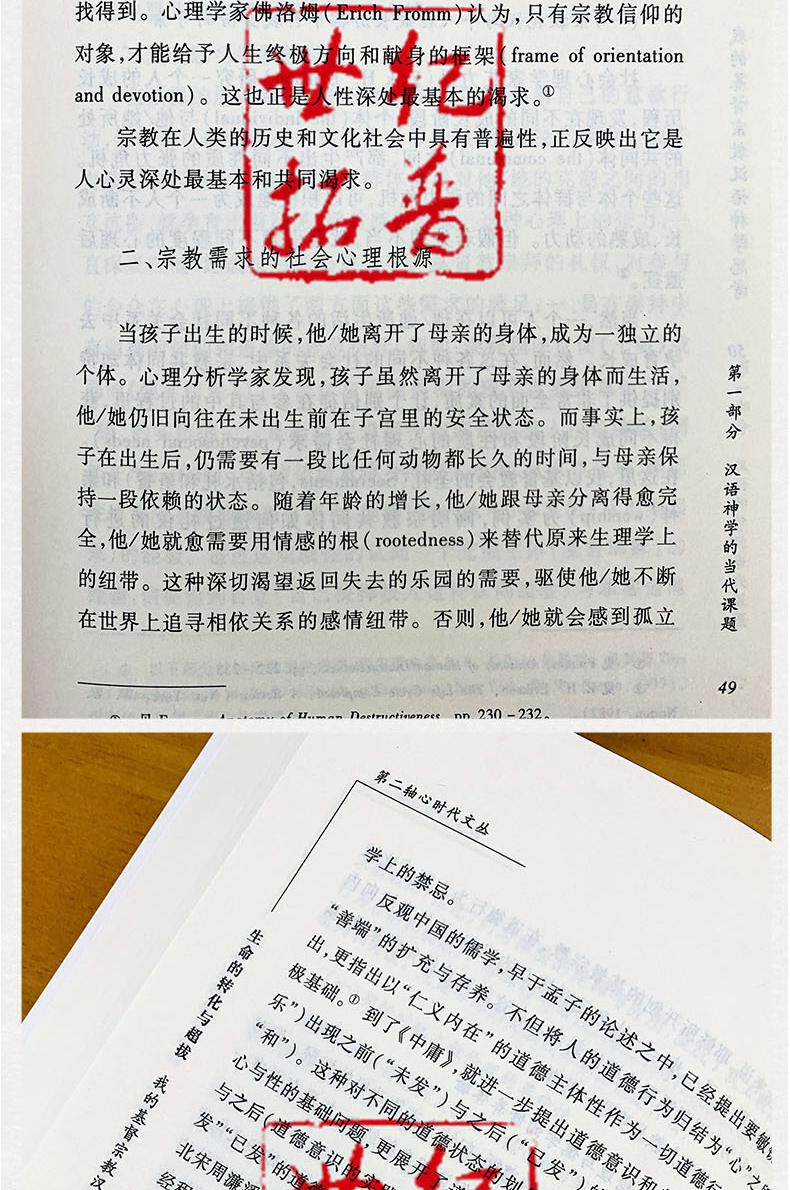 找得到。心理学家佛洛姆(Erich Fromm)认为,只有宗教信仰的
对象,才能给予人生终极方向和献身的框架(frame of orientation
and devotion)。这也正是人性深处最基本的渴求。①
宗教在人类的历史和文化社会中具有普遍性,正反映出它是
人心灵深处最基本和共同渴求。
世纪
拓普
二、宗教需求的社会心理根源
当孩子出生的时候,他/她离开了母亲的身体,成为一独立的
个体。心理分析学家发现,孩子虽然离开了母亲的身体而生活,
他/她仍旧向往在未出生前在子宫里的安全状态。而事实上,孩
子在出生后,仍需要有一段比任何动物都长久的时间,与母亲保
持一段依赖的状态。随着年龄的增长,他/她跟母亲分离得愈完
全,他/她就愈需要用情感的根(rootedness)来替代原来生理学上
的纽带。这种深切渴望返回失去的乐园的需要,驱使他/她不断
在世界上追寻相依关系的感情纽带。否则,他/她就会感到孤立
第一部分 汉语神学的当代课题
49
Anatomy of Human Destructiveness, pp. 230-232。
第二轴心时代文丛
生命的转化与超拔 我的基督宗教汉
学上的禁忌。
反观中国的儒学,早于孟子的论述之中,已经提出要敏
“善端”的扩充与存养。不但将人的道德行为归结为“心”之
出,更指出以“仁义内在”的道德主体性作为一切道德行
极基础。①到了《中庸》,就进一步提出道德意识和
乐”)出现之前(“未发”)与之后(“已发”)的
“和”)。这种对不同的道德状态的划
心与性的基础问题,更展开了
与之后(道德意识的实
发”“已发”的道德
北宋周濂溪
经程
世纪